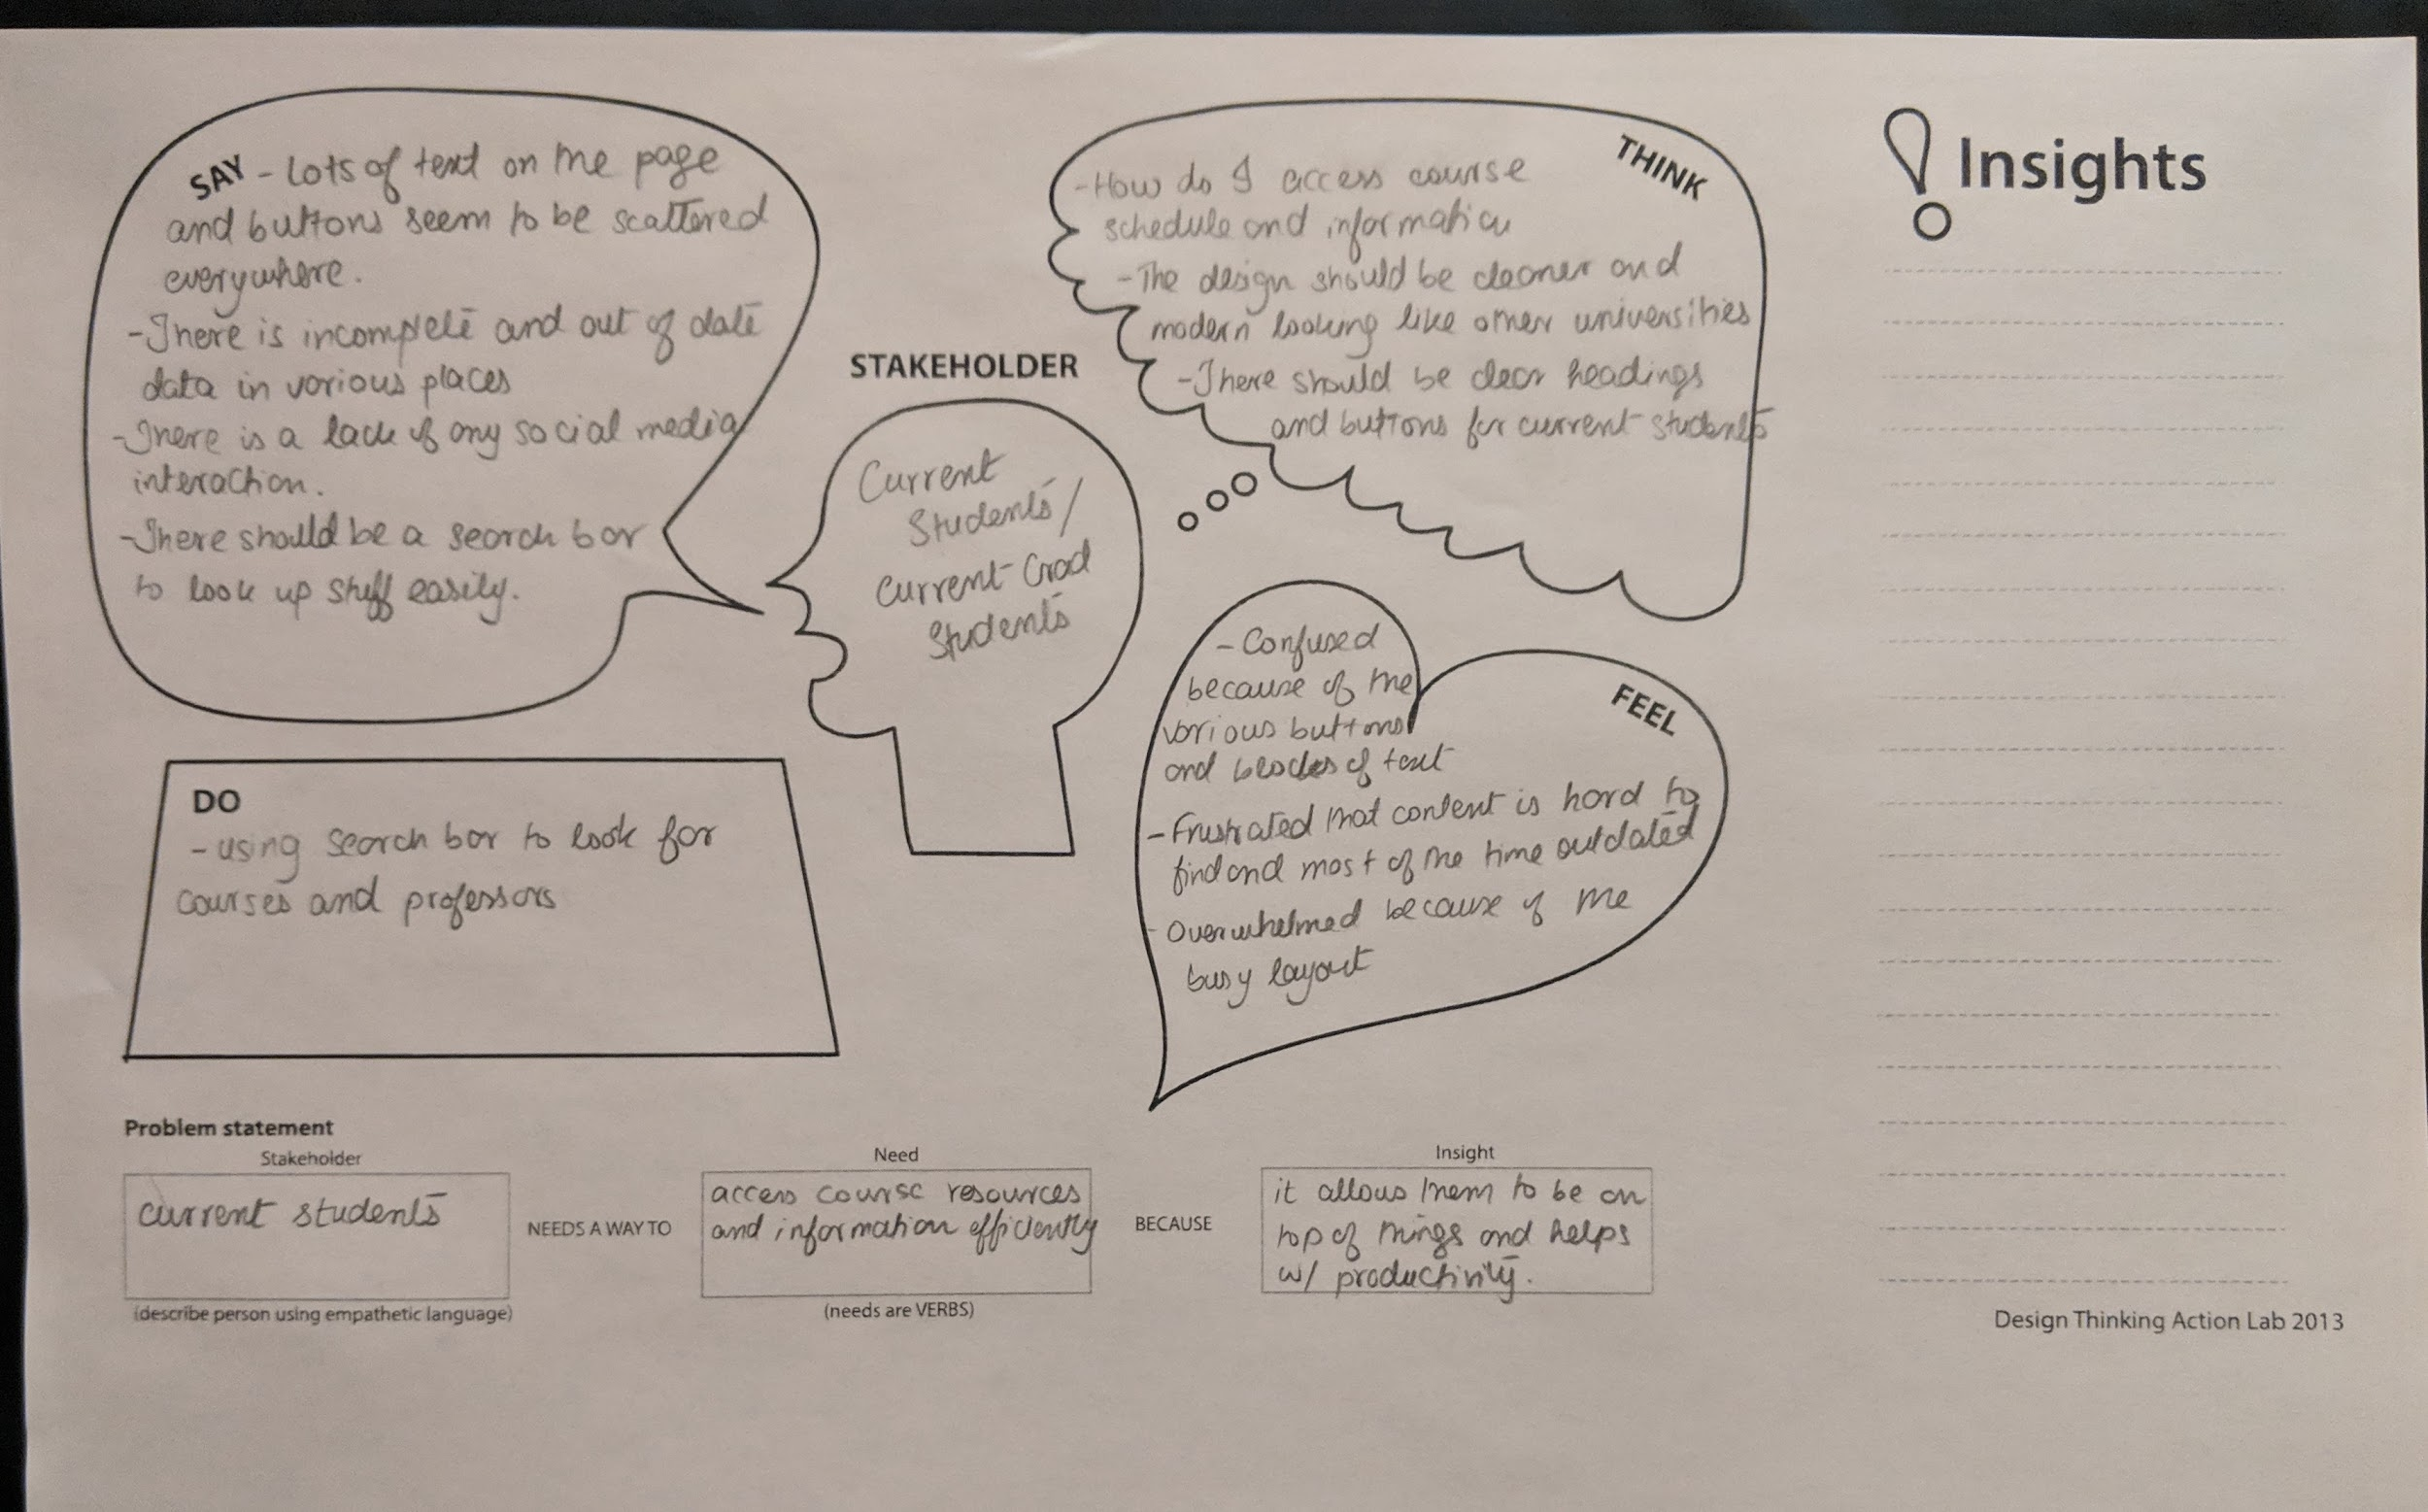 SAY - Lots of text on the page
and buttons seem to be scattered
everywhere.
- There is incomplete and out of date
data in various places
- There is a lack of any social media
interaction.
- There should be a search bar
to look up stuff easily.
STAKEHOLDER
Current
Students/
Current Grad
Students
THINK
- How do I access course
schedule and information
- The design should be cleaner and
modern looking like other universities
- There should be clear headings
and buttons for current students
FEEL
- Confused
because of the
various buttons
and blocks of text
- Frustrated that content is hard to
find and most of the time outdated
- Overwhelmed because of the
busy layout
DO
- using search bar to look for
courses and professors
Insights
Problem statement
Stakeholder
current students
(describe person using empathetic language)
NEEDS A WAY TO
Need
access course resources
and information efficiently
(needs are VERBS)
BECAUSE
Insight
it allows them to be on
top of things and helps
w/ productivity.
Design Thinking Action Lab 2013